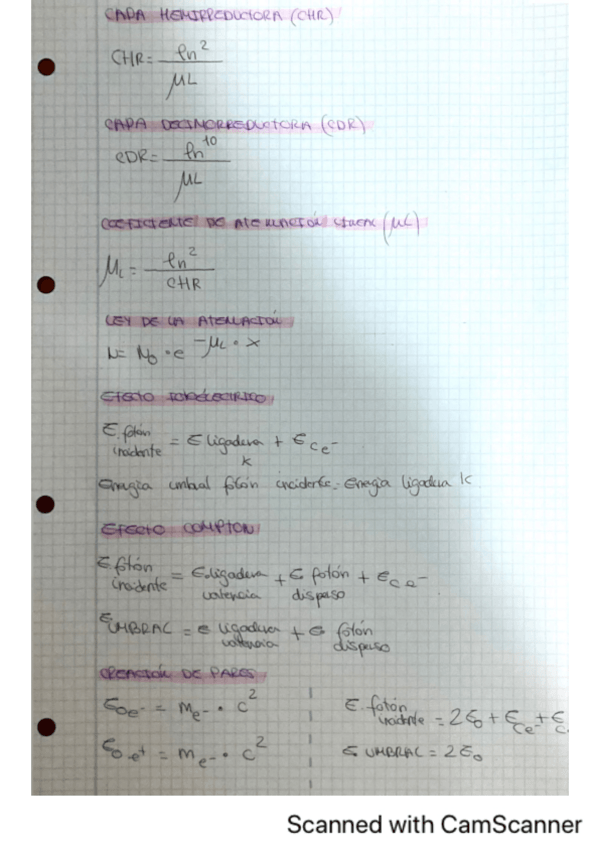 CAPA HEMIRREDUCTORA (CHR)
CHR = ln² / μL
CAPA DECIMORREDUCTORA (CDR)
CDR = ln¹⁰ / μL
COEFICIENTE DE ATENUACIÓN LINEAL (μL)
μL = ln² / CHR
LEY DE LA ATENUACIÓN
N = N₀ · e^(-μL · x)
EFECTO FOTOELÉCTRICO
E fotón incidente = E ligadura K + E c e⁻
Energía umbral fotón incidente = Energía ligadura K
EFECTO COMPTON
E fotón incidente = E ligadura valencia + E fotón disperso + E c e⁻
E UMBRAL = E ligadura valencia + E fotón disperso
CREACIÓN DE PARES
E₀e⁻ = me⁻ · c²
E₀e⁺ = me⁻ · c²
E fotón incidente = 2E₀ + Ece⁻ + Ec
E UMBRAL = 2E₀
Scanned with CamScanner